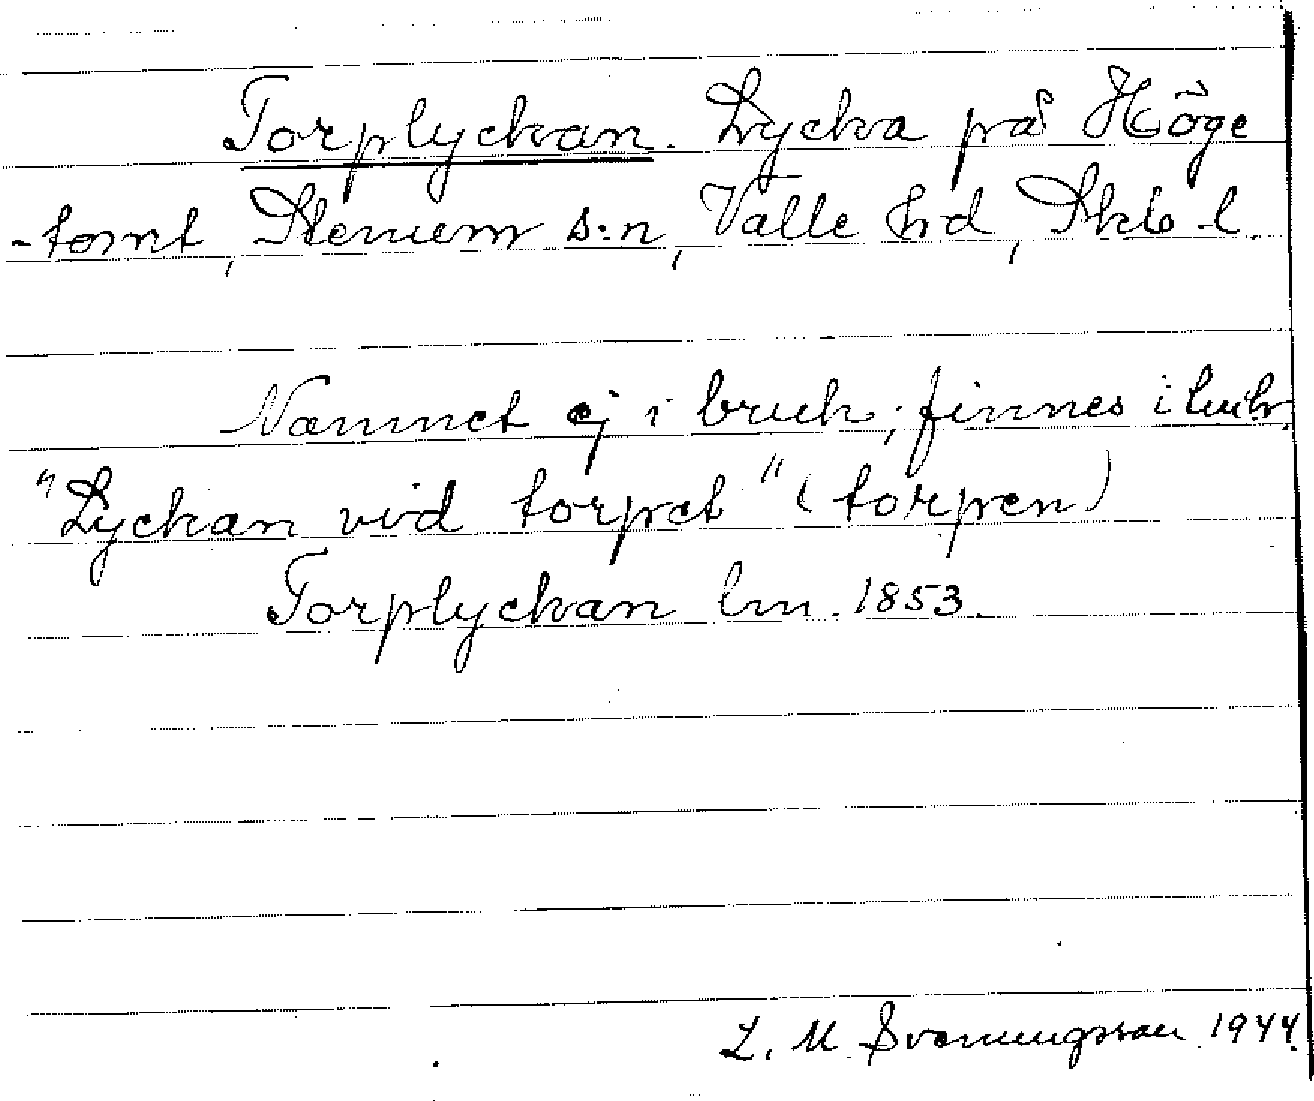 Torplyckan. Lycka på Höge
-tomt, Stenum s:n, Valle hd, Skb. l.
Namnet ej i bruk; finnes i
"Lyckan vid torpet" (torpen)
Torplyckan lm. 1853.
L. M. Svenungsson 1944.